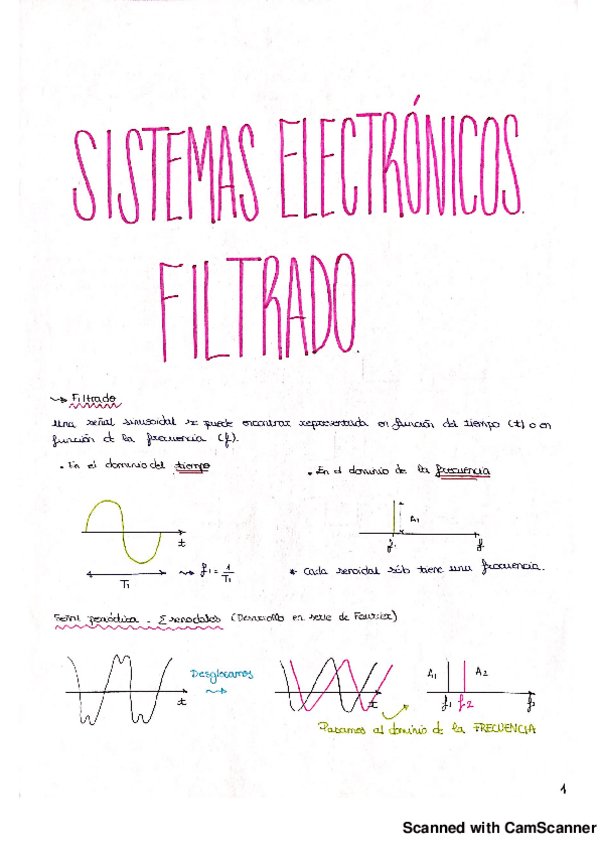 SISTEMAS ELECTRÓNICOS.
FILTRADO.
↝ Filtrado
Una señal sinusoidal se puede encontrar representada en función del tiempo (t) o en
función de la frecuencia (f).
• En el dominio del tiempo
• En el dominio de la frecuencia
A1
t
f1
f
T1
↝ f1 = 1/T1
* Cada senoidal sólo tiene una frecuencia.
Señal periódica = Σ senoidales (Desarrollo en serie de Fourier)
Desglosamos
t
t
A1
A2
f1
f2
f
Pasamos al dominio de la FRECUENCIA
1
Scanned with CamScanner